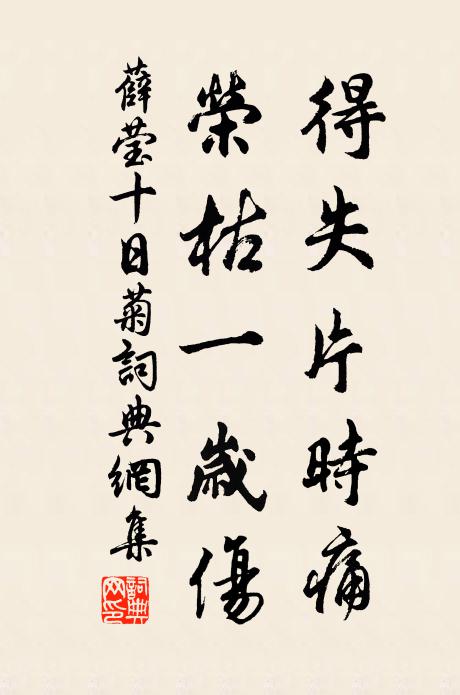 得失片時痛
榮枯一歲傷
薛瑩十日菊詞典網集
詞典网印